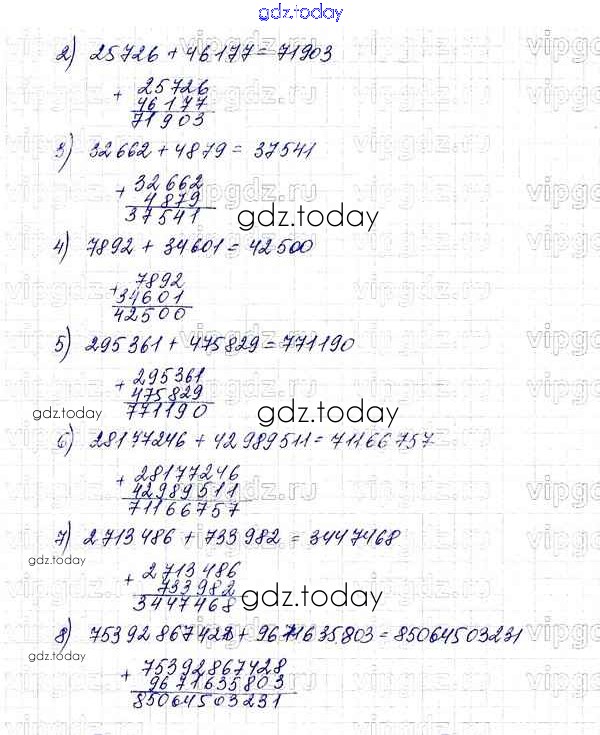 gdz.today
2) 25726 + 46177 = 71903
+ 25726
46177
71903
vipgdz.ru
3) 32662 + 4879 = 37541
+ 32662
4879
37541
gdz.today
4) 7892 + 34601 = 42500
+ 7892
34601
42500
5) 295361 + 475829 = 771190
+ 295361
475829
771190
gdz.today
gdz.today
6) 28177246 + 42989511 = 71166757
+ 28177246
42989511
71166757
7) 2713486 + 733982 = 3447468
gdz.today
+ 2713486
733982
3447468
gdz.today
8) 75392867428 + 9671635803 = 85064503231
gdz.today
+ 75392867428
9671635803
85064503231